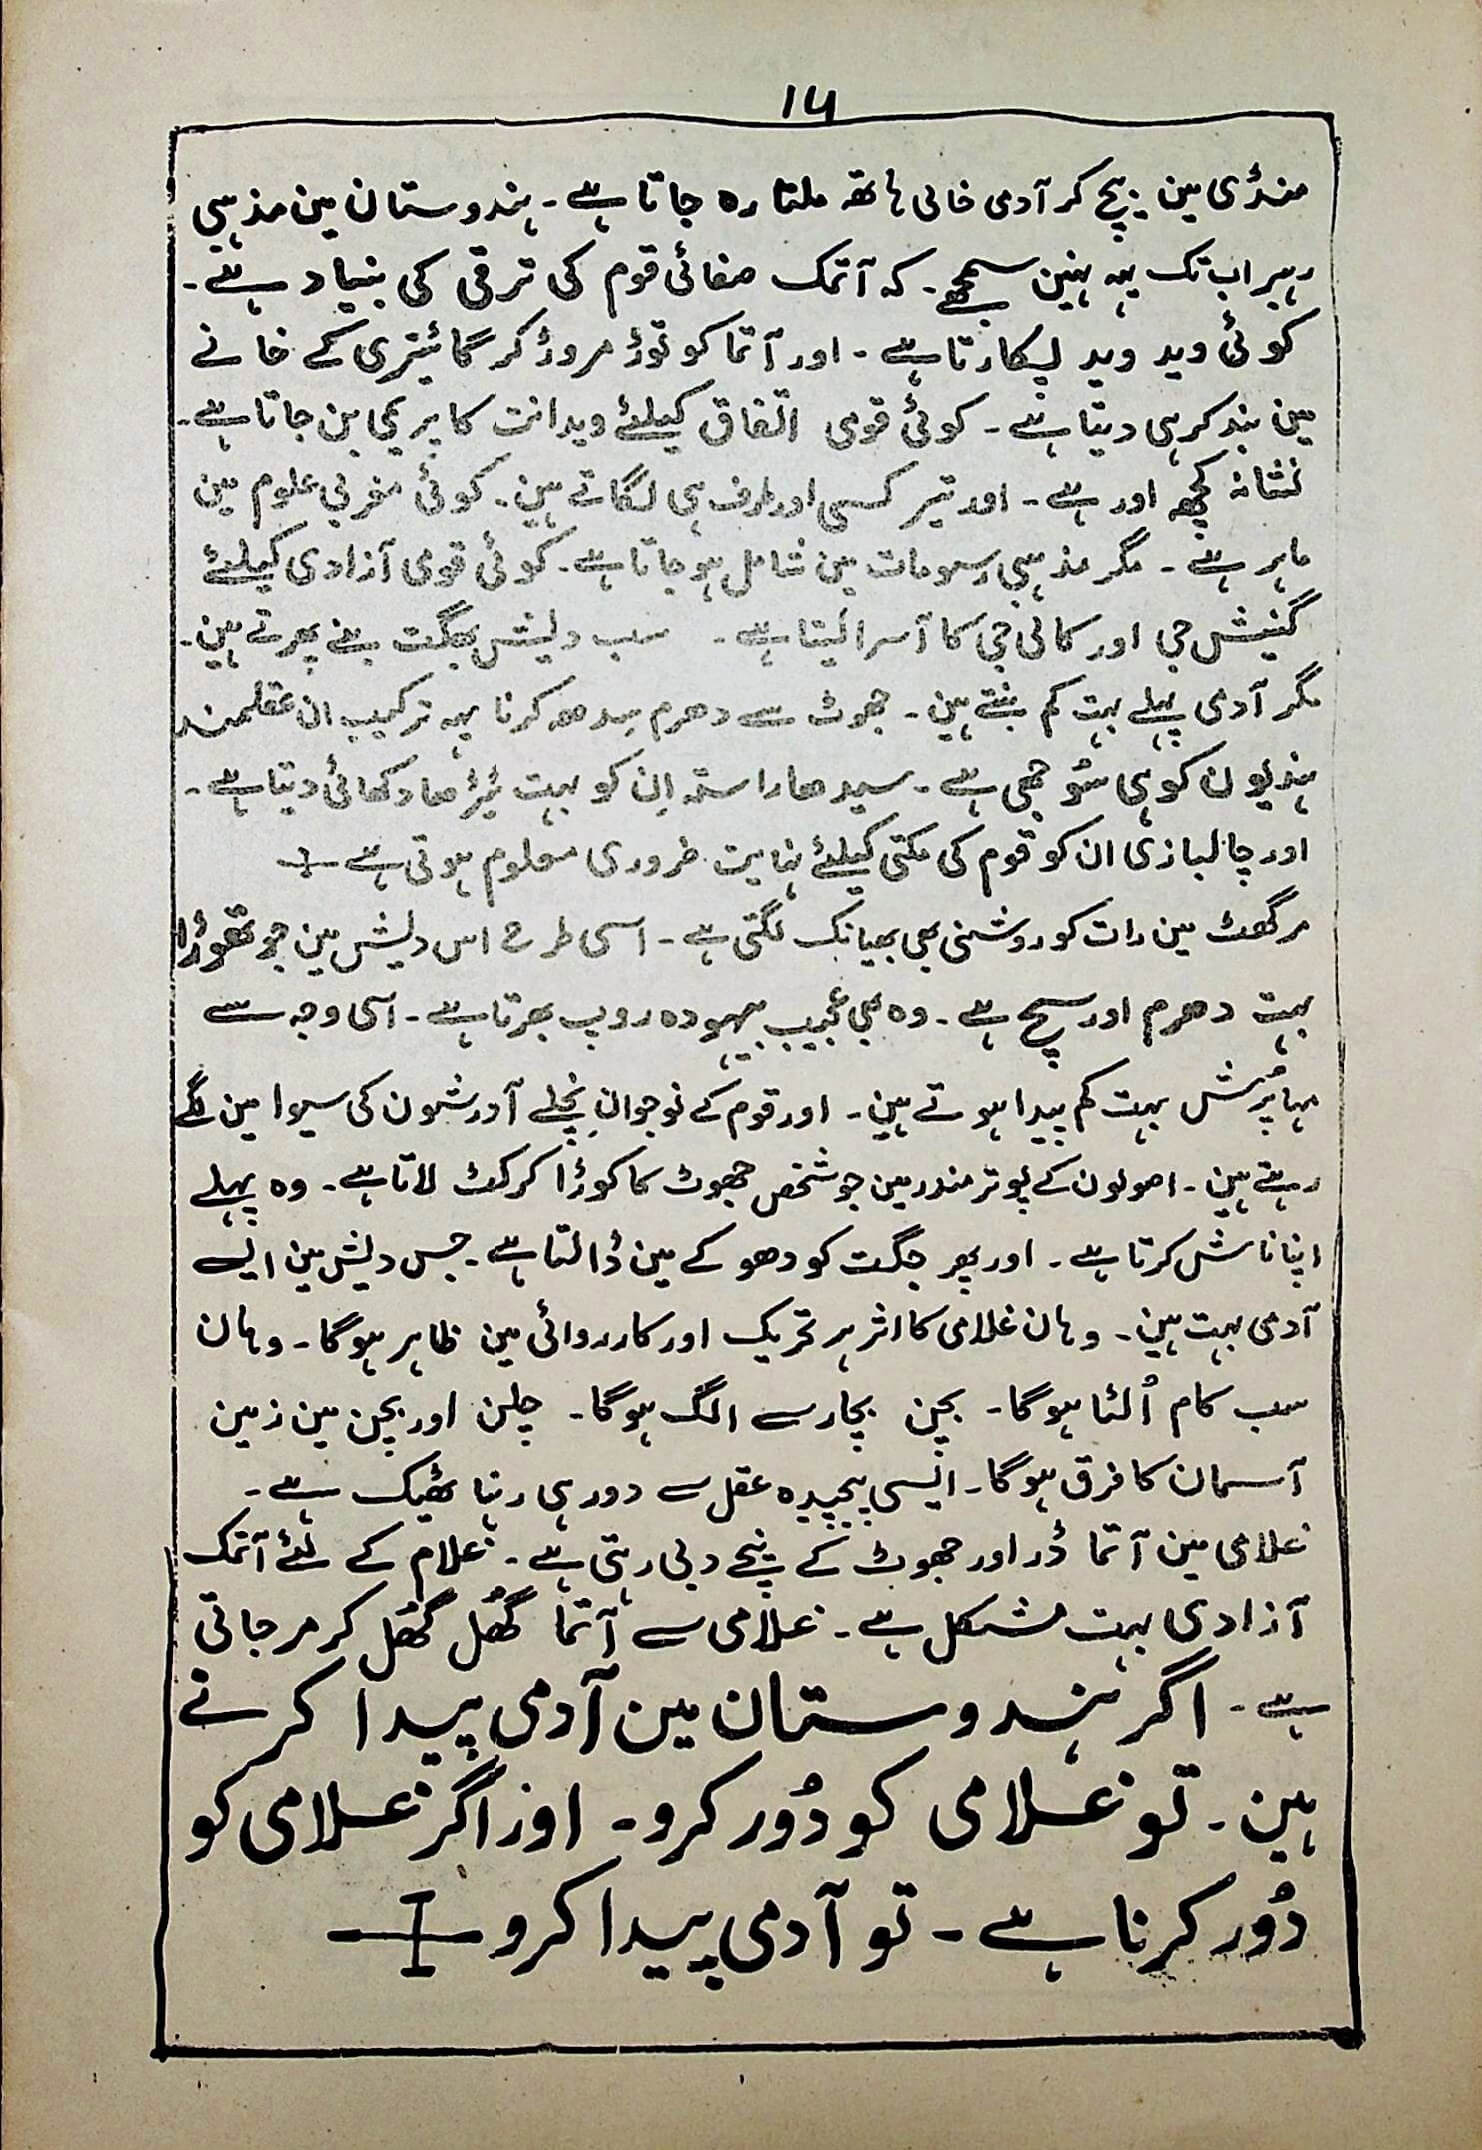 ۱۴
منڈی مین بیچ کر آدمی خالی ہاتھ ملتا رہ جاتا ہے۔ ہندوستان مین مذہبی
رہبر اب تک یہہ نہین سمجھے۔ کہ آتمک صفائی قوم کی ترقی کی بنیاد ہے۔
کوئی وید وید پکارتا ہے۔ اور آتما کو توڑ مروڑ کر گائیتری کے خانے
مین بند کر ہی دیتا ہے۔ کوئی قومی اتفاق کیلئے ویدانت کا پریمی بن جاتا ہے۔
نشانہ کچھ اور ہے۔ اور تیر کسی اور طرف ہی لگاتے ہین۔ کوئی مغربی علوم مین
ماہر ہے۔ مگر مذہبی رسومات مین شامل ہو جاتا ہے۔ کوئی قومی آزادی کیلئے
گنیش جی اور کالی جی کا آسرا لیتا ہے۔ سب دیش بھگت بنے پھرتے ہین۔
مگر آدمی پہلے بہت کم بنتے ہین۔ جھوٹ سے دھرم سدھ کرنا یہہ ترکیب ان عقلمند
ہندیون کو ہی سُوجھی ہے۔ سیدھا راستہ اِن کو بہت ٹیڑھا دکھائی دیتا ہے۔
اور چالبازی ان کو قوم کی مکتی کیلئے نہایت ضروری معلوم ہوتی ہے
مرگھٹ مین رات کو روشنی بھی بھیانک لگتی ہے۔ اسی طرح اس دیش مین جو تھوڑا
بہت دھرم اور سچ ہے۔ وہ بھی عجیب بیہودہ روپ بھرتا ہے۔ اسی وجہ سے
مہاپُرش بہت کم پیدا ہوتے ہین۔ اور قوم کے نوجوان نِچلے آدرشون کی سیوا مین لگے
رہتے ہین۔ اصولون کے پوتر مندر مین جو شخص جھوٹ کا کوڑا کرکٹ لاتا ہے۔ وہ پہلے
اپنا ناش کرتا ہے۔ اور پھر جگت کو دھوکے مین ڈالتا ہے۔ جس دیش مین ایسے
آدمی بہت ہین۔ وہان غلامی کا اثر ہر تحریک اور کارروائی مین ظاہر ہوگا۔ وہان
سب کام اُلٹا ہوگا۔ بچن بچار سے الگ ہوگا۔ چلن اور بچن مین زمین
آسمان کا فرق ہوگا۔ ایسی پیچیدہ عقل سے دور ہی رہنا ٹھیک ہے۔
غلامی مین آتما ڈر اور جھوٹ کے نیچے دبی رہتی ہے۔ غلام کے لئے آتمک
آزادی بہت مشکل ہے۔ غلامی سے آتما گھُل گھُل کر مر جاتی
ہے۔ اگر ہندوستان مین آدمی پیدا کرنے
ہین۔ تو غلامی کو دُور کرو۔ اور اگر غلامی کو
دُور کرنا ہے۔ تو آدمی پیدا کرو